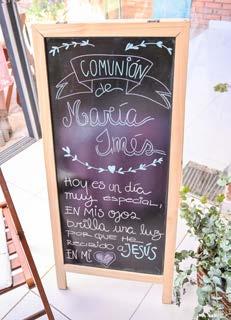 COMUNIÓN
de
María
Inés
Hoy es un día
muy especial,
EN MIS OJOS
brilla una luz
POR QUE HE
RECIBIDO A JESÚS
EN MI